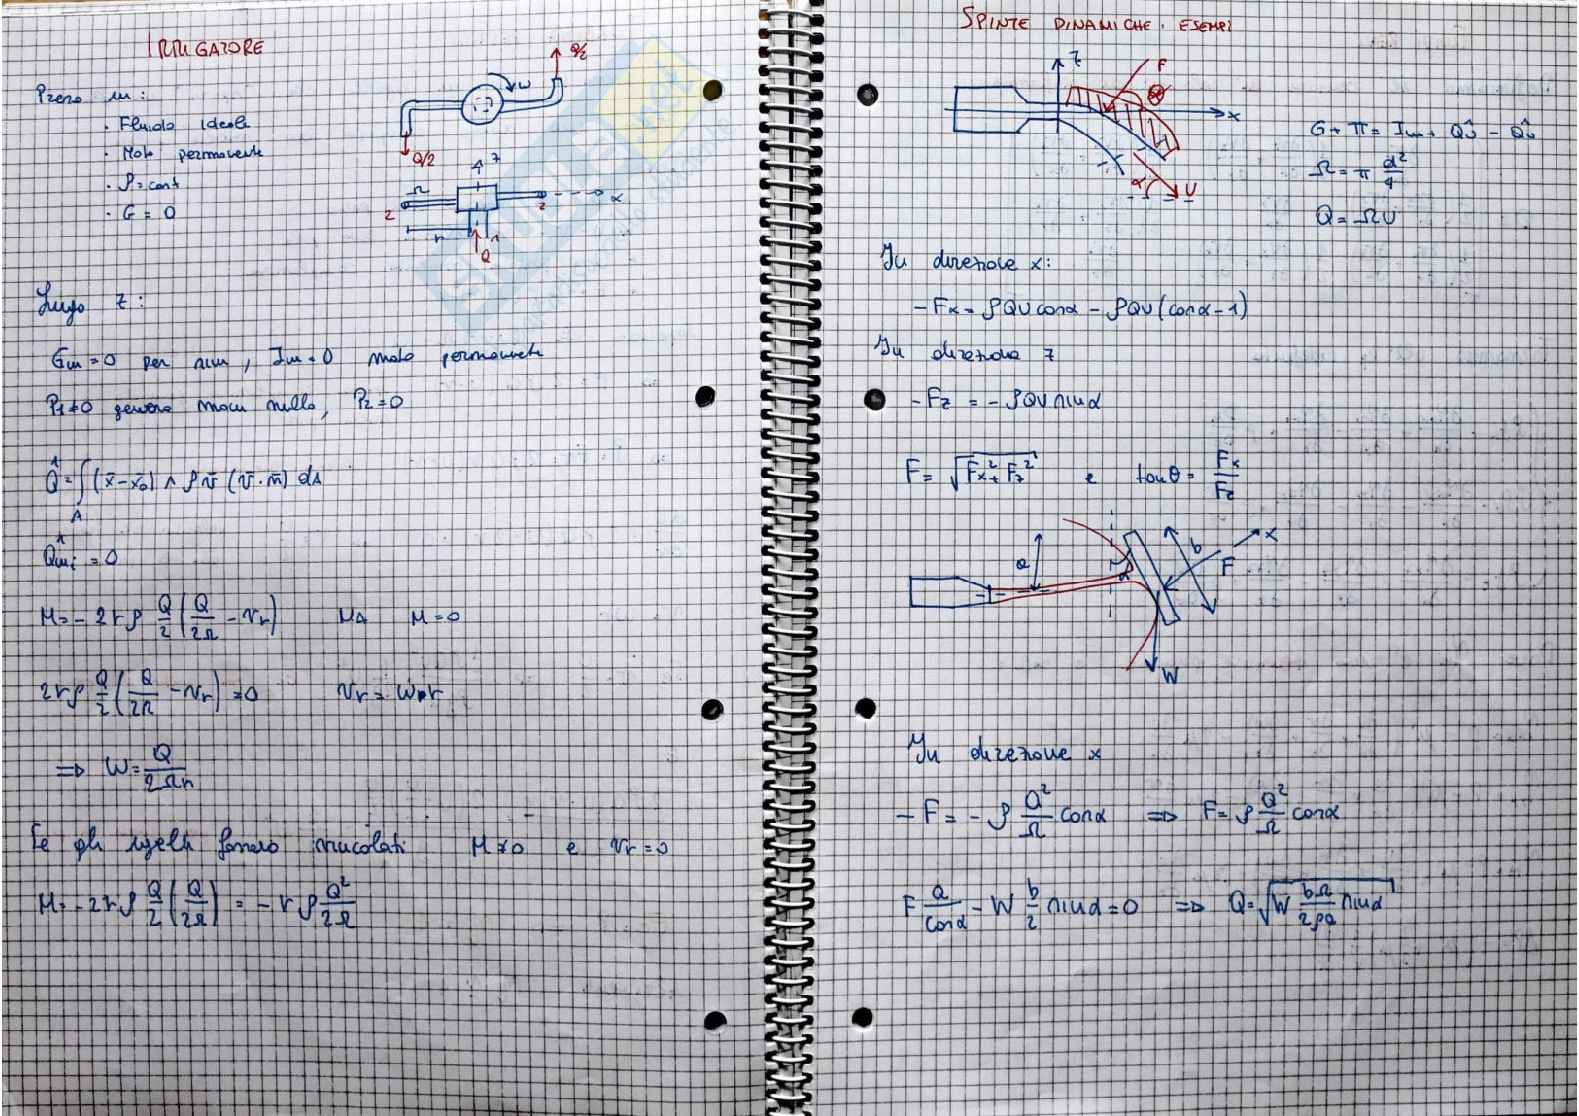 IRRIGATORE
Preso in:
· Fluido ideale
· Moto permanente
· ρ = cost
· G = 0
Q/2
ω
Q/2
z
Ω
x
2
2
r
1
Q
Lungo z:
Gm = 0 per sim, Im = 0 moto permanente
P1 ≠ 0 genera mom nullo, P2 = 0
Q̂ = ∫A (x̄ - x̄0) ∧ ρ v̄ (v̄ · n̄) dA
Q̂mi = 0
M = - 2rρ Q/2 (Q/2Ω - vr) MA M = 0
2rρ Q/2 (Q/2Ω - vr) = 0 vr = ω r
⇒ ω = Q/2Ωr
Se gli ugelli fossero vincolati M ≠ 0 e vr = 0
M = - 2rρ Q/2 (Q/2Ω) = - rρ Q²/2Ω
SPINTE DINAMICHE. ESEMPI
z
F
x
α
U
G + Π = Im + Q̂u - Q̂u
Ω = π d²/4
Q = ΩU
In direzione x:
- Fx = ρQU cosα - ρQU (cosα - 1)
In direzione z
- Fz = - ρQU sinα
F = √(Fx² + Fz²) e tanθ = Fx/Fz
a
α
b
x
F
W
In direzione x
- F = - ρ Q²/Ω cosα ⇒ F = ρ Q²/Ω cosα
F a/cosα - W b/2 sinα = 0 ⇒ Q = √(W bΩ/2ρa sinα)